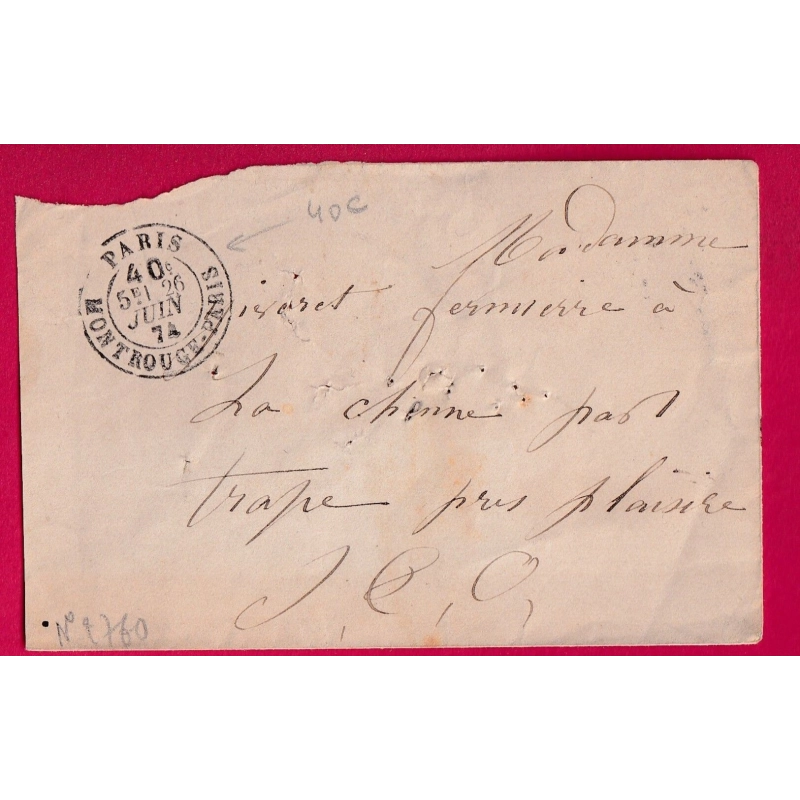 40c
PARIS
40c
5E/ 26
JUIN
74
MONTROUGE-PARIS
Madamme
ivoret fermierre à
La chenne part
trape pres plaisire
S, C, O,
N° 2760